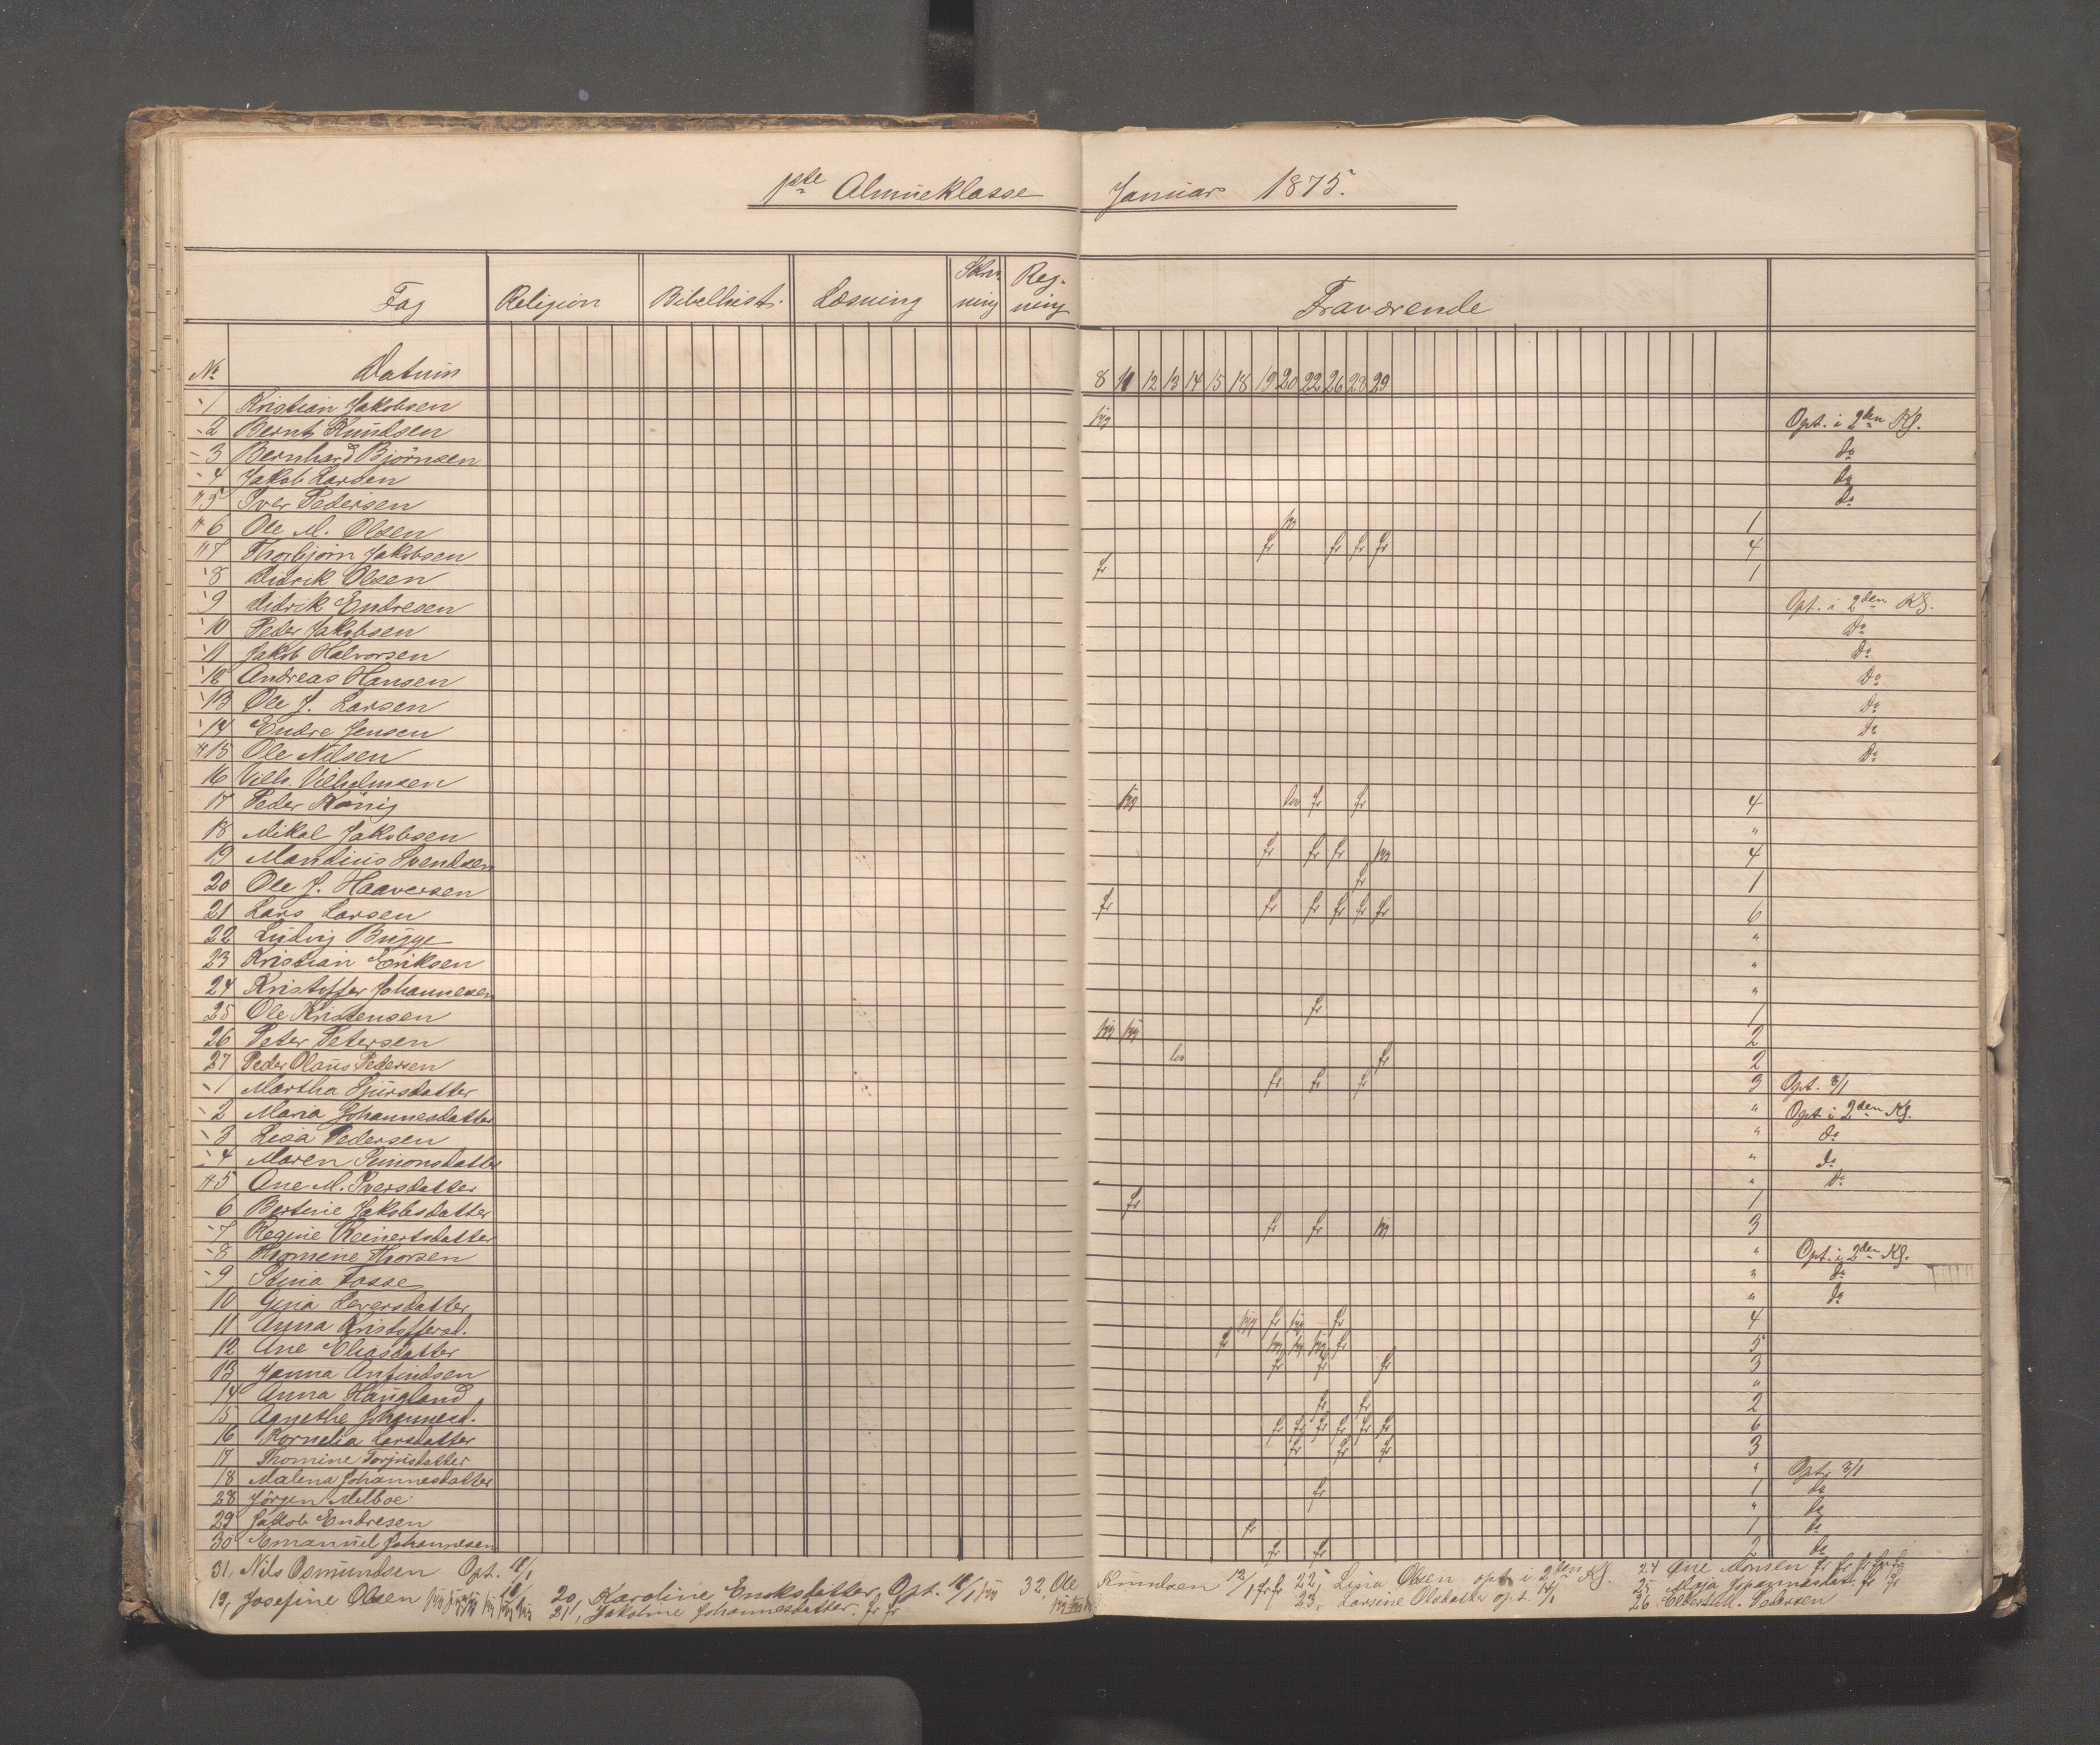 1ste Almueklasse Januar 1875.
Fag Religion Bibelhist. Læsning Skrivning Regning Fraværende
No Datum 8 11 12 13 14 15 18 19 20 22 26 28 29
1 Kristian Jakobsen
2 Bernt Knudsen Opt. i 2den Kl.
3 Bernhard Björnsen do
4 Jakob Larsen do
5 Iver Pedersen do
6 Ole M. Olsen 1
7 Thorbjörn Jakobsen fr fr fr fr 4
8 Didrik Olsen fr 1
9 Didrik Endresen Opt. i 2den Kl.
10 Peder Jakobsen Do
11 Jakob Halvorsen Do
12 Andreas Hansen Do
13 Ole J. Larsen Do
14 Endre Jensen Do
15 Ole Nilsen Do
16 Vilh. Vilhelmsen
17 Peder König fr fr 4
18 Mikal Jakobsen "
19 Mandius Svendsen fr fr fr 4
20 Ole J. Haaversen fr 1
21 Lars Larsen fr fr fr fr fr fr 6
22 Ludvig Bugge "
23 Kristian Eriksen "
24 Kristoffer Johannesen "
25 Ole Kristensen fr 1
26 Peter Petersen 2
27 Peder Olaus Pedersen fr 2
1 Martha Sjursdatter fr fr fr 3 Opt. 8/1
2 Maria Johannesdatter " Opt. i 2den Kl.
3 Lisa Pedersen " do
4 Maren Simonsdatter " do
5 Ane M. Iversdatter " Do
6 Bertine Jakobsdatter fr 1
7 Regine Reinertsdatter fr fr 3
8 Thomine Thorsen " Opt. i 2den Kl.
9 Stina Tasse " do
10 Gina Laversdatter " do
11 Anna Kristoffersd. fr fr 4
12 Ane Eliasdatter fr fr 5
13 Janna Anfindsen fr fr fr 3
14 Anna Haugland "
15 Agnethe Johannesd. fr fr 2
16 Kornelia Larsdatter fr fr fr fr fr fr 6
17 Thomine Torjusdatter fr fr fr 3
18 Malena Johannesdatter " Opt. 8/1
28 Jörgen Melboe fr 1 do
29 Jakob Endresen " do
30 Emanuel Johannesen fr 1 do
fr fr 2 do
31, Nils Osmundsen Opt. 18/1
19, Josefine Olsen 20, Karoline Eriksdatter, Opt. 32, Ole Knudsen 12/1 fr fr 22, Lisa Olsen opt i 2den Kl. 24 Ane Monsen fr fr fr fr fr
21, Jakobine Johannesdatter. fr fr 23, Larsine Olsdatter opt. 14/1 25 Maja Johannesdatt. fr fr
26 Elbert M. Pedersen